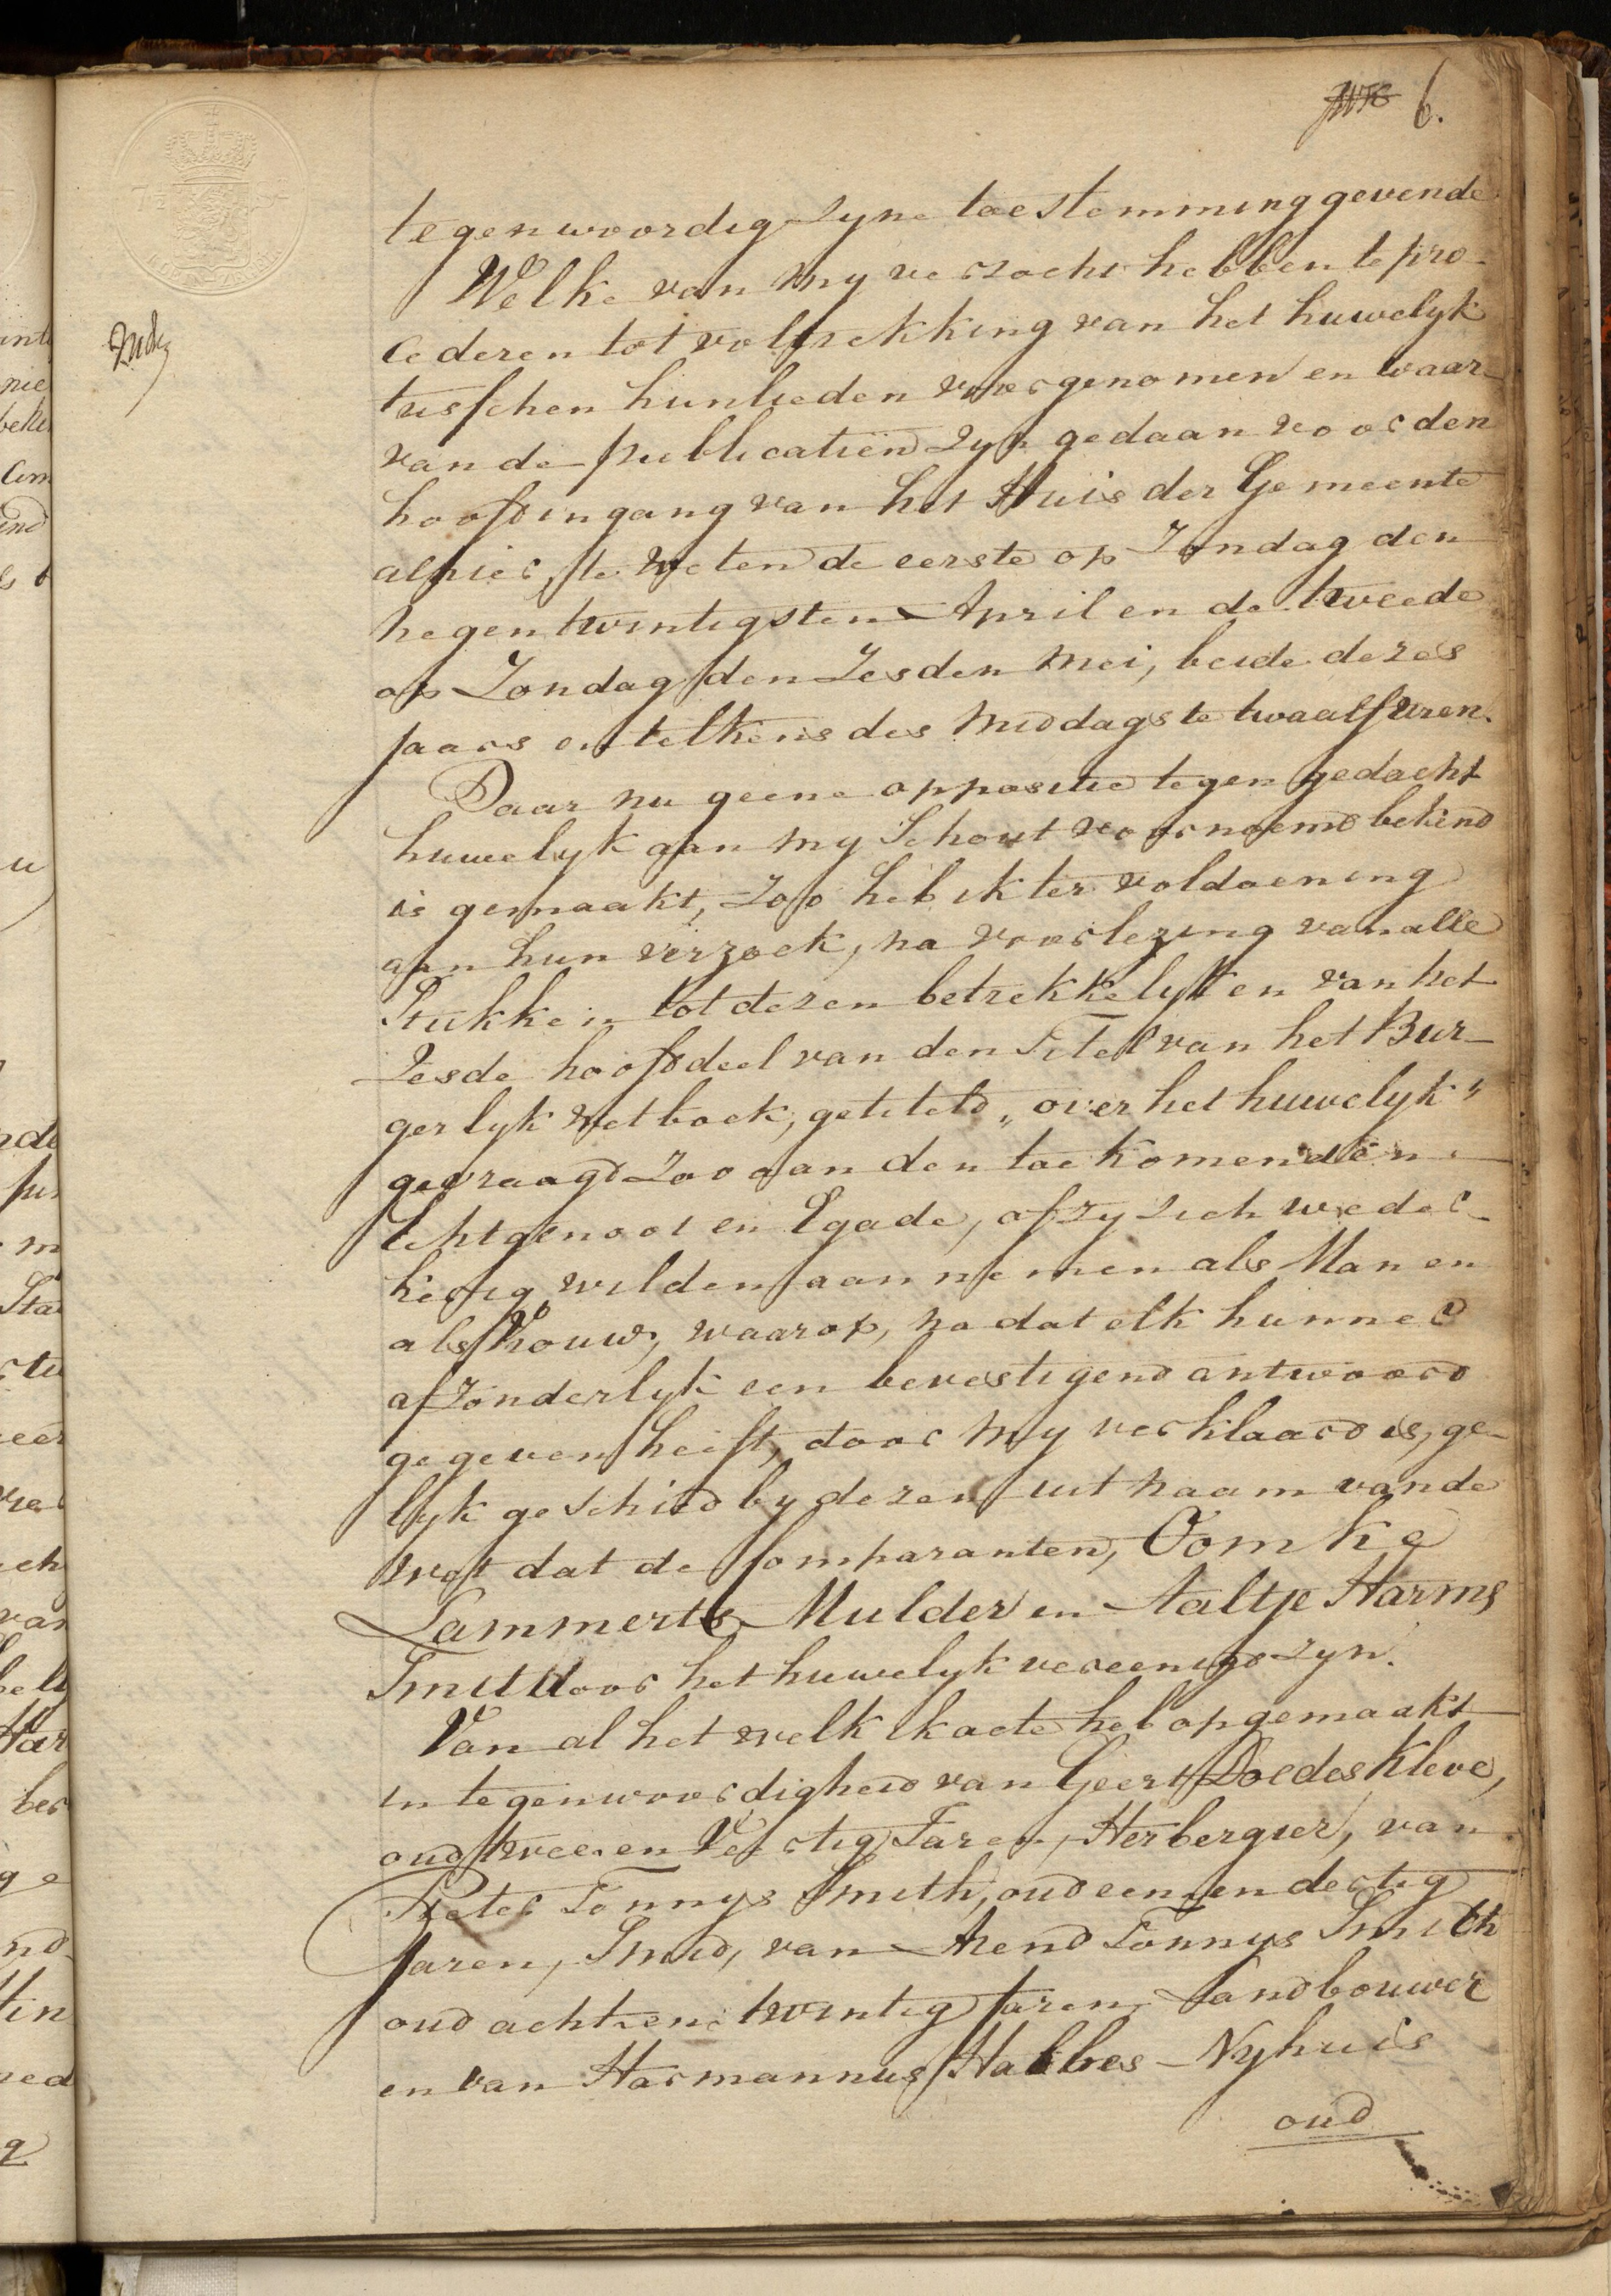 6.
tegenwoordig zyne toestemming gevende
Welke van my verzocht hebben te pro-
cederen tot voltrekking van het huwelyk
tusschen hunlieden voorgenomen en waar-
van de publicatien zyn gedaan voor den
hoofdingang van het Huis der Gemeente
alhier, te weten de eerste op Zondag den
negentwintigsten April en de tweede
op Zondag den Zesden Mei, beide dezes
jaars en telkens des middags te twaalf uren.
Daar nu geene oppositie tegen gedacht
huwelyk aan my Schout voornoemd bekend
is gemaakt, zoo heb ik ter voldoening
aan hun verzoek, na voorlezing van alle
Stukken tot dezen betrekkelyk en van het
Zesde hoofddeel van den Titel van het Bur-
gerlyk wetboek, getiteld „over het huwelyk"
gevraagd zoo aan den toekomenden
Echtgenoot en Egade, of zy zich weder-
kerig wilden aannemen als Man en
als Vrouw, waarop, na dat elk hunner
afzonderlyk een bevestigend antwoord
gegeven heeft, door my verklaard is, ge-
lyk geschied by dezen uit naam van de
wet dat de Comparanten, Oomke
Lammerts Mulder en Aaltje Harms
Smit door het huwelyk vereenigd zyn.
Van al het welk ik acte heb opgemaakt
in tegenwoordigheid van Geert Doedes Kleve,
oud twee en Veertig Jaren, Herbergier, van
Pieter Tonnys Smith, oud een en dertig
Jaren, Smid, van Arend Tonnys Smith
oud acht en twintig jaren, Landbouwer
en van Harmannus Habbes Nyhuis
oud